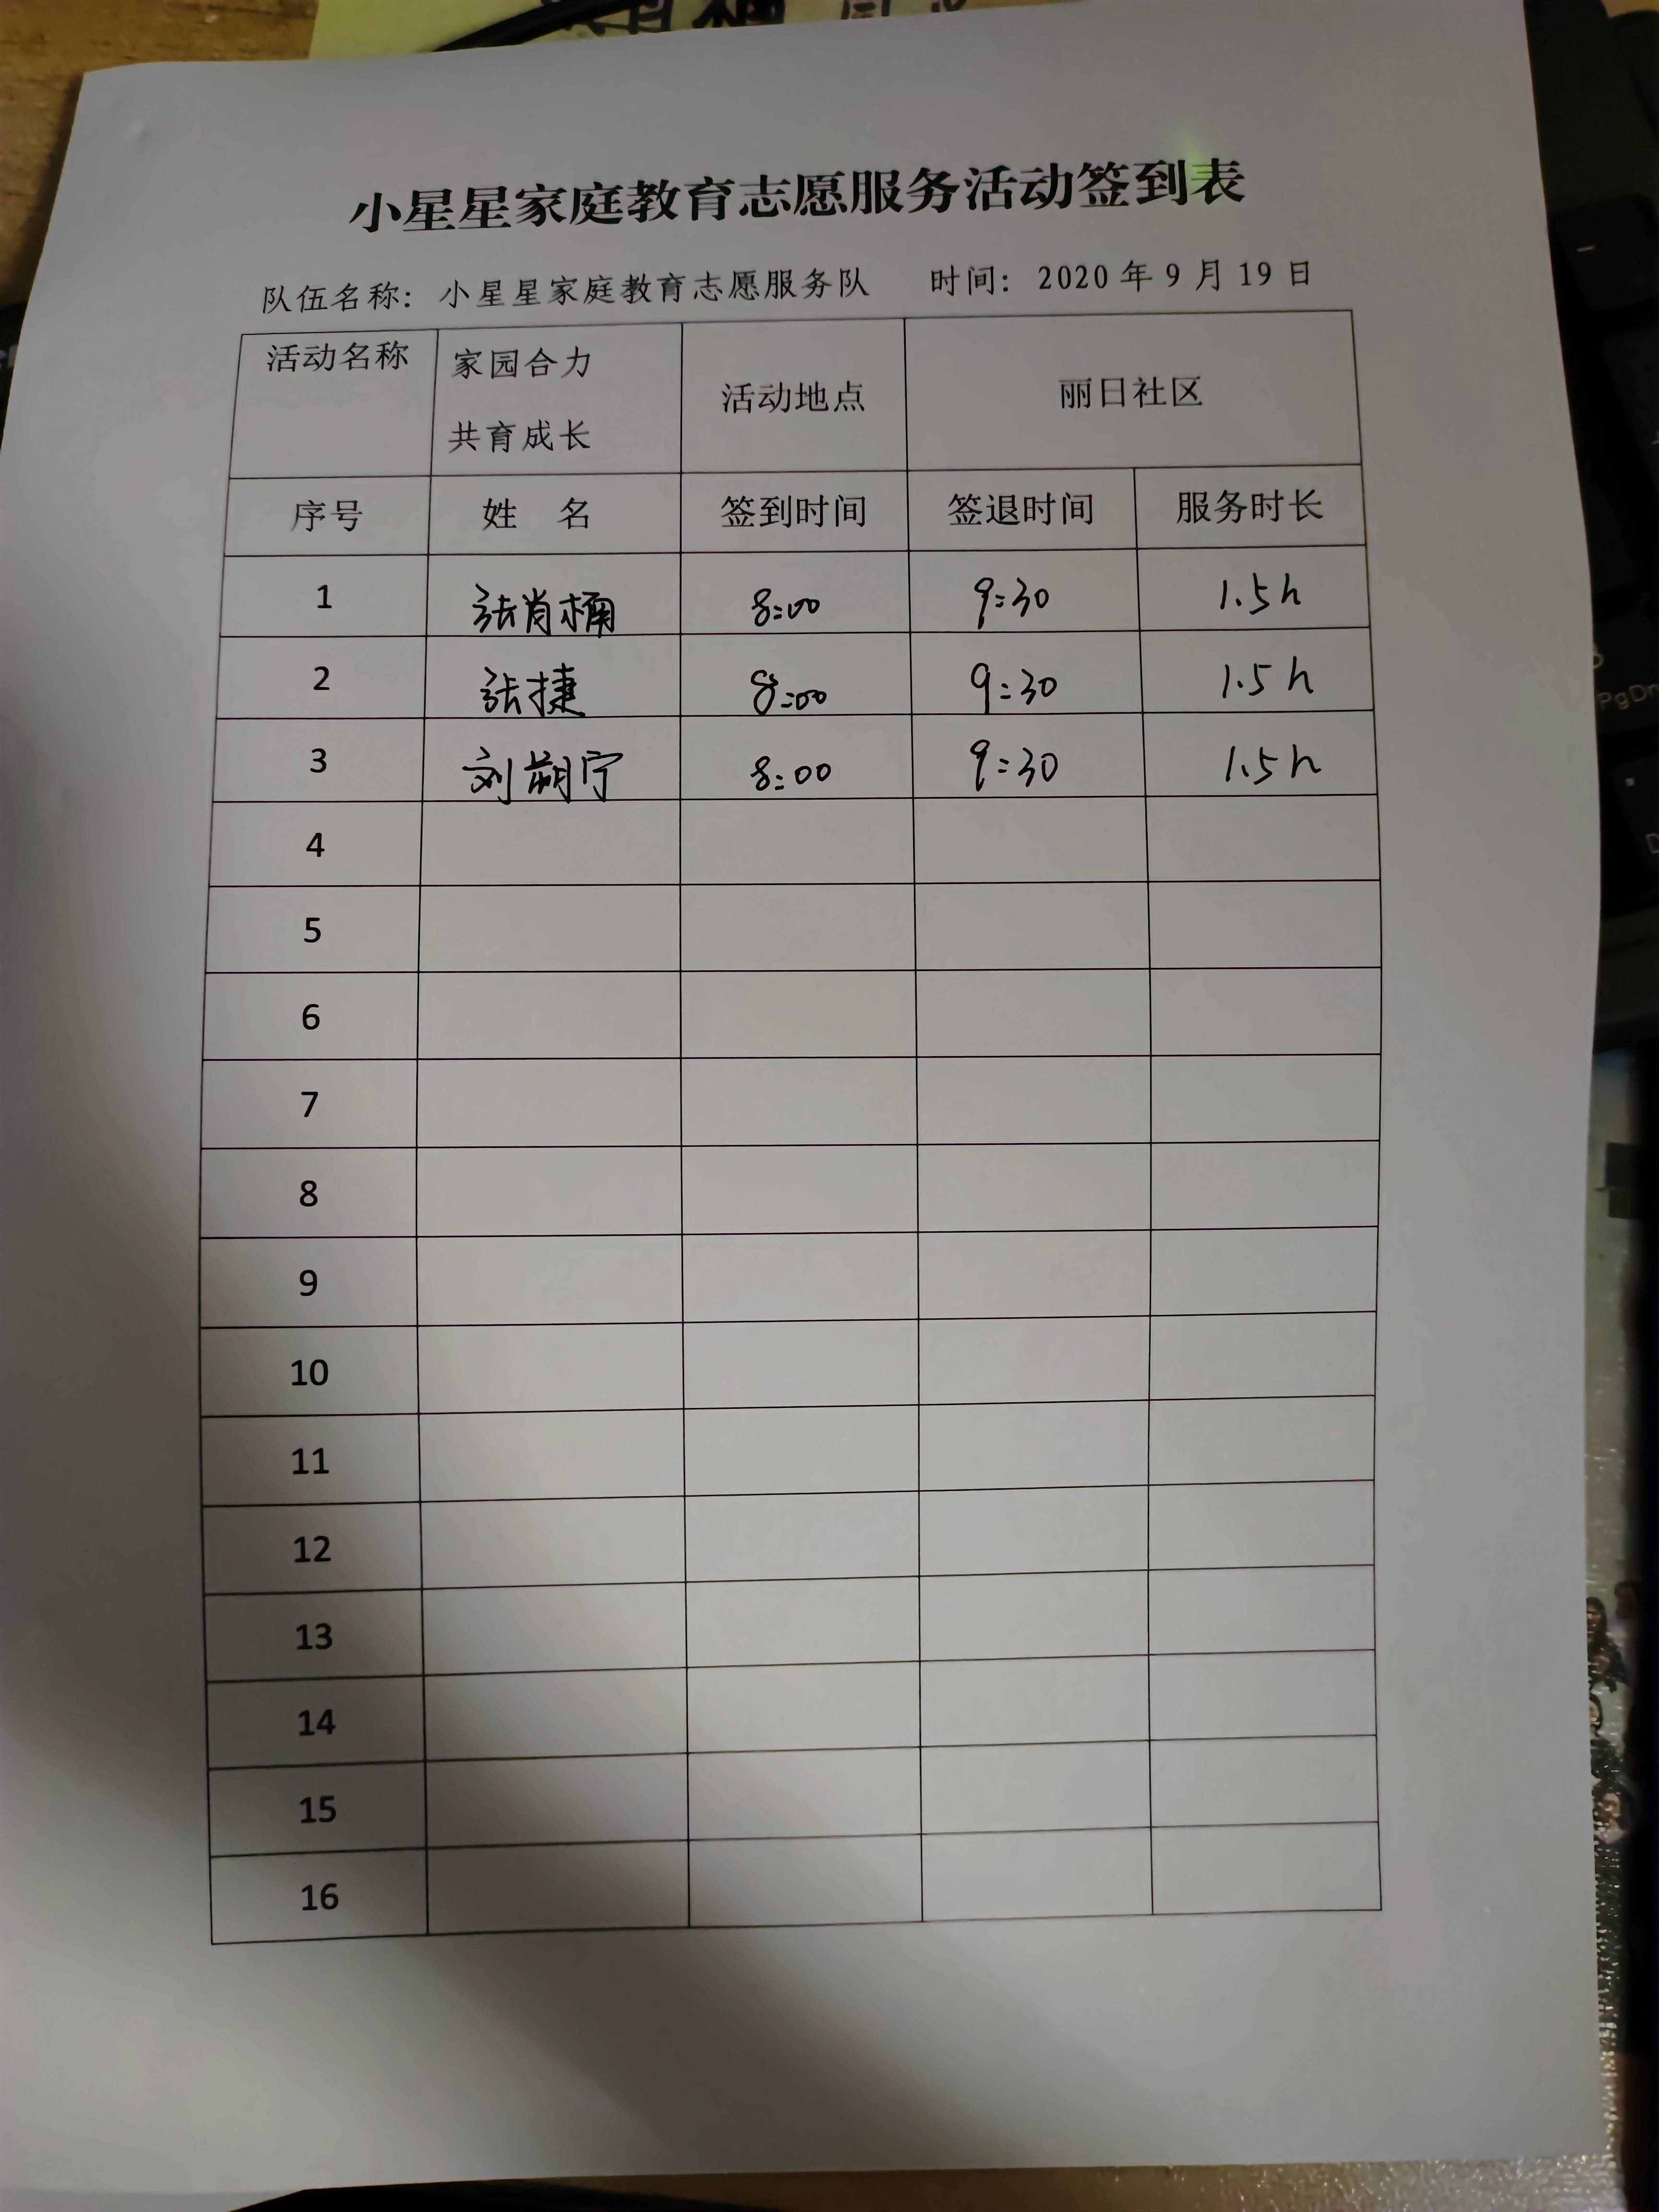 小星星家庭教育志愿服务活动签到表
队伍名称: 小星星家庭教育志愿服务队 时间: 2020 年 9 月 19 日
活动名称 家园合力 共育成长 活动地点 丽日社区
序号 姓 名 签到时间 签退时间 服务时长
1 张肖桶 8:00 9:30 1.5h
2 张捷 8:00 9:30 1.5h
3 刘朔宁 8:00 9:30 1.5h
4
5
6
7
8
9
10
11
12
13
14
15
16
PgDn